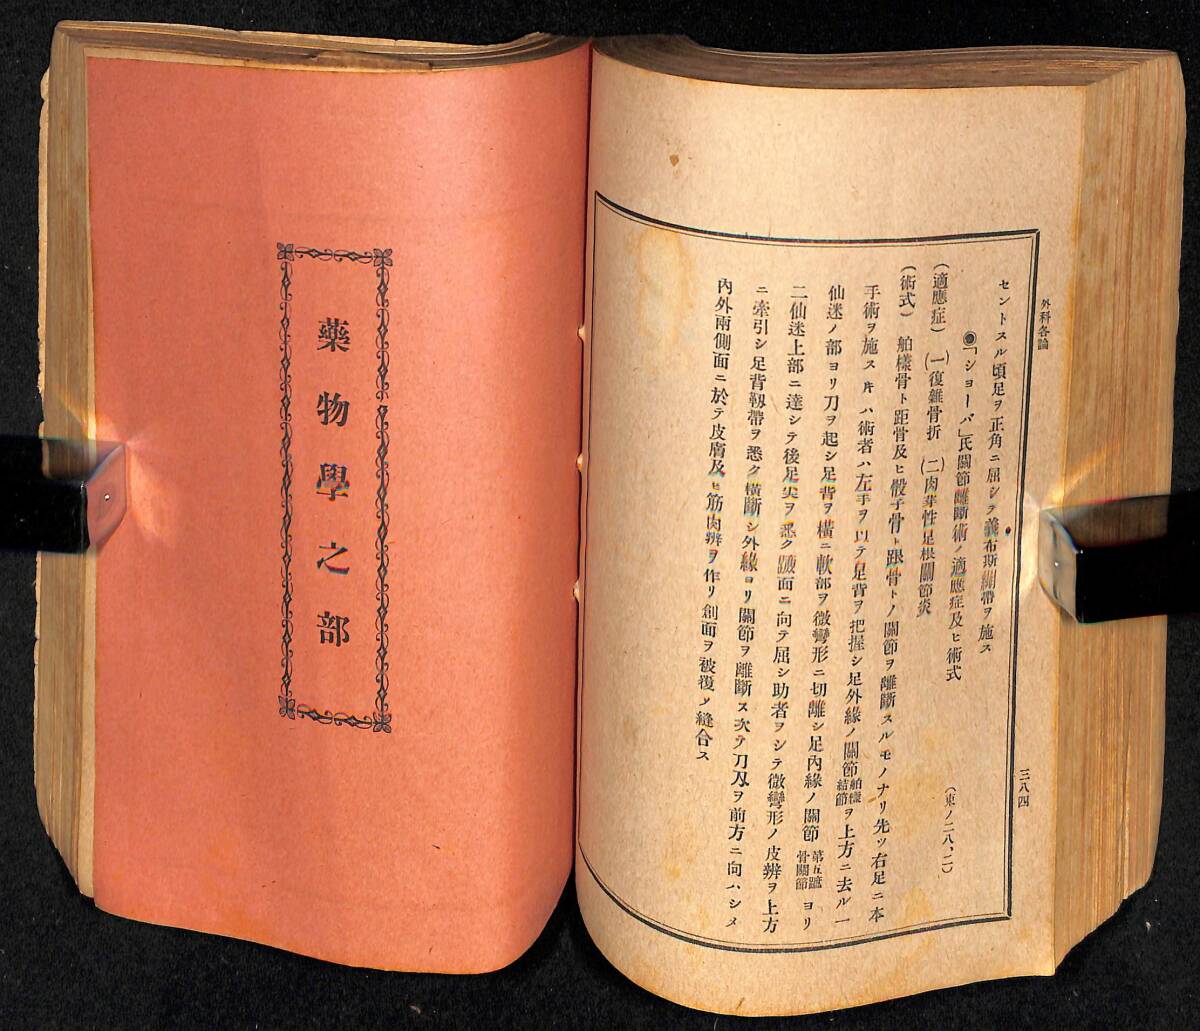 外科各論
三八四
セントスル頃足ヲ正角ニ屈シテ義布斯繃帶ヲ施ス
◉「ショーパ」氏關節離斷術ノ適應症及ヒ術式
(東ノ二八、二)
(適應症) (一)復雜骨折 (二)肉芽性足根關節炎
(術式) 舶樣骨ト距骨及ヒ骰子骨ト跟骨トノ關節ヲ離斷スルモノナリ先ツ右足ニ本
手術ヲ施ス𪜈ハ術者ハ左手ヲ以テ足背ヲ把握シ足外緣ノ關節舶樣結節ヲ上方ニ去ル一
仙迷ノ部ヨリ刀ヲ起シ足背ヲ橫ニ軟部ヲ微彎形ニ切離シ足內緣ノ關節第五蹠骨關節ヨリ
二仙迷上部ニ達シテ後足尖ヲ悉ク蹠面ニ向テ屈シ助者ヲシテ微彎形ノ皮辨ヲ上方
ニ牽引シ足背靱帶ヲ悉ク橫斷シ外緣ヨリ關節ヲ離斷ス次テ刀刄ヲ前方ニ向ハシメ
內外兩側面ニ於テ皮膚及ヒ筋肉辨ヲ作リ創面ヲ被覆ノ縫合ス
藥物學之部